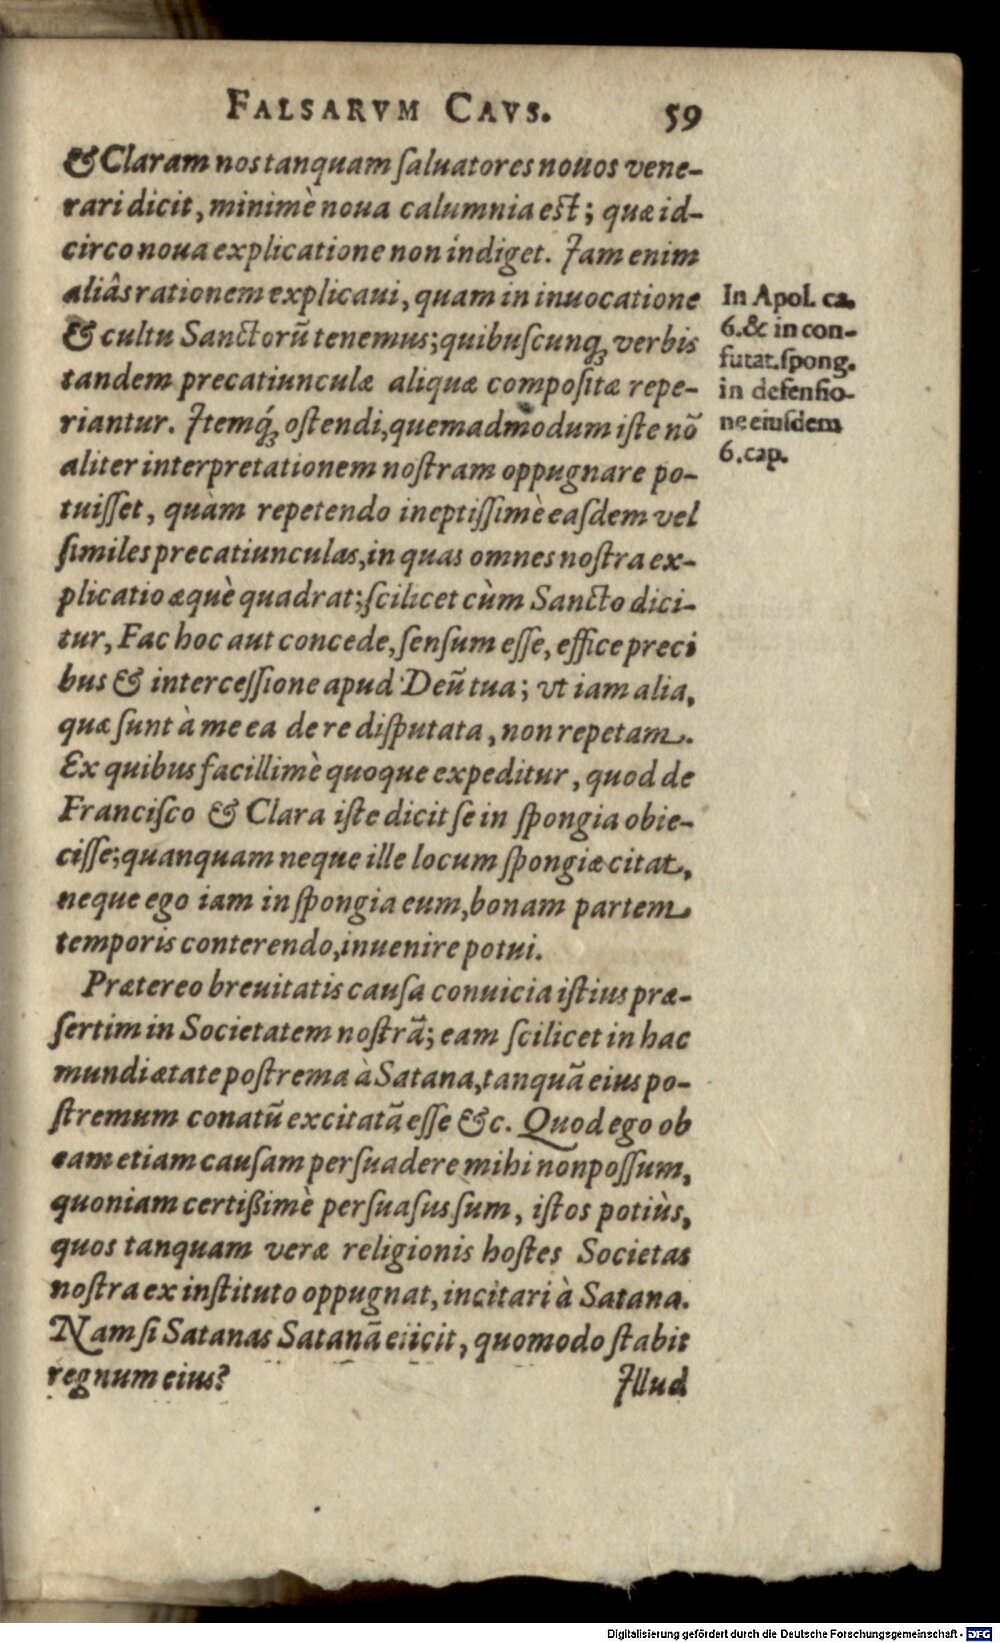 FALSARVM CAVS. 59
& Claram nos tanquam ſaluatores nouos vene-
rari dicit, minimè noua calumnia est; quæ id-
circo noua explicatione non indiget. Jam enim
aliâs rationem explicaui, quam in inuocatione
& cultu Sanctorũ tenemus; quibuſcunq́ꝫ verbis
tandem precatiunculæ aliquæ compoſitæ repe-
riantur. Jtemq́ꝫ oſtendi, quemadmodum iſte nõ
aliter interpretationem noſtram oppugnare po-
tuiſſet, quàm repetendo ineptiſſimè eaſdem vel
ſimiles precatiunculas, in quas omnes noſtra ex-
plicatio æquè quadrat; ſcilicet cùm Sancto dici-
tur, Fac hoc aut concede, ſenſum eſſe, effice preci
bus & interceſſione apud Deũ tua; vt iam alia,
quæ ſunt à me ea de re diſputata, non repetam.
Ex quibus facillimè quoque expeditur, quod de
Franciſco & Clara iſte dicit ſe in ſpongia obie-
ciſſe; quanquam neque ille locum ſpongiæ citat,
neque ego iam in ſpongia eum, bonam partem
temporis conterendo, inuenire potui.
Prætereo breuitatis cauſa conuicia iſtius præ-
ſertim in Societatem noſtrã; eam ſcilicet in hac
mundi ætate poſtrema à Satana, tanquã eius po-
ſtremum conatũ excitatã eſſe &c. Quod ego ob
eam etiam cauſam perſuadere mihi non poſſum,
quoniam certißimè perſuaſus ſum, iſtos potiùs,
quos tanquam veræ religionis hoſtes Societas
noſtra ex inſtituto oppugnat, incitari à Satana.
Nam ſi Satanas Satanã eiicit, quomodo ſtabit
regnum eius?
Jllud
In Apol. ca.
6. & in con-
futat. ſpong.
in defenſio-
ne eiuſdem
6. cap.
Digitalisierung gefördert durch die Deutsche Forschungsgemeinschaft - DFG